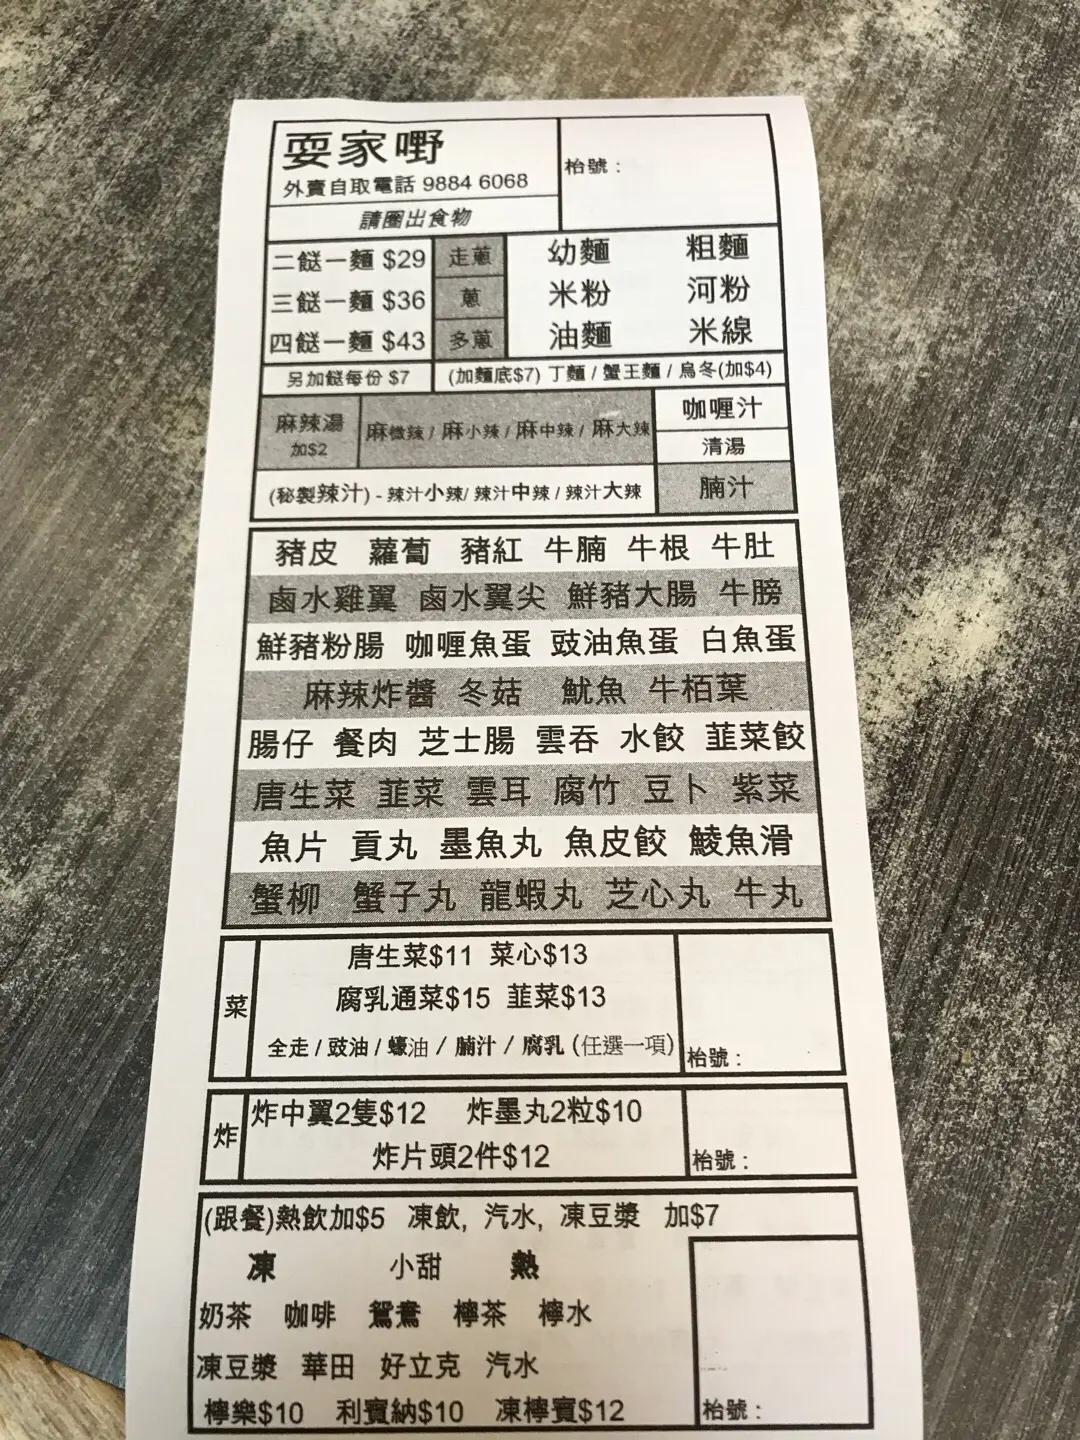 耍家嘢
外賣自取電話 9884 6068
枱號：
請圈出食物
二餸一麵 $29 走蔥 幼麵 粗麵
三餸一麵 $36 蔥 米粉 河粉
四餸一麵 $43 多蔥 油麵 米線
另加餸每份 $7 (加麵底$7) 丁麵 / 蟹王麵 / 烏冬(加$4)
麻辣湯 加$2 麻微辣 / 麻小辣 / 麻中辣 / 麻大辣 咖喱汁
清湯
(秘製辣汁) - 辣汁小辣/ 辣汁中辣 / 辣汁大辣 腩汁
豬皮 蘿蔔 豬紅 牛腩 牛根 牛肚
鹵水雞翼 鹵水翼尖 鮮豬大腸 牛膀
鮮豬粉腸 咖喱魚蛋 豉油魚蛋 白魚蛋
麻辣炸醬 冬菇 魷魚 牛栢葉
腸仔 餐肉 芝士腸 雲吞 水餃 韮菜餃
唐生菜 韮菜 雲耳 腐竹 豆卜 紫菜
魚片 貢丸 墨魚丸 魚皮餃 鯪魚滑
蟹柳 蟹子丸 龍蝦丸 芝心丸 牛丸
菜
唐生菜$11 菜心$13
腐乳通菜$15 韮菜$13
全走 / 豉油 / 蠔油 / 腩汁 / 腐乳 (任選一項)
枱號：
炸
炸中翼2隻$12 炸墨丸2粒$10
炸片頭2件$12
枱號：
(跟餐)熱飲加$5 凍飲, 汽水, 凍豆漿 加$7
凍 小甜 熱
奶茶 咖啡 鴛鴦 檸茶 檸水
凍豆漿 華田 好立克 汽水
檸樂$10 利賓納$10 凍檸賓$12
枱號：